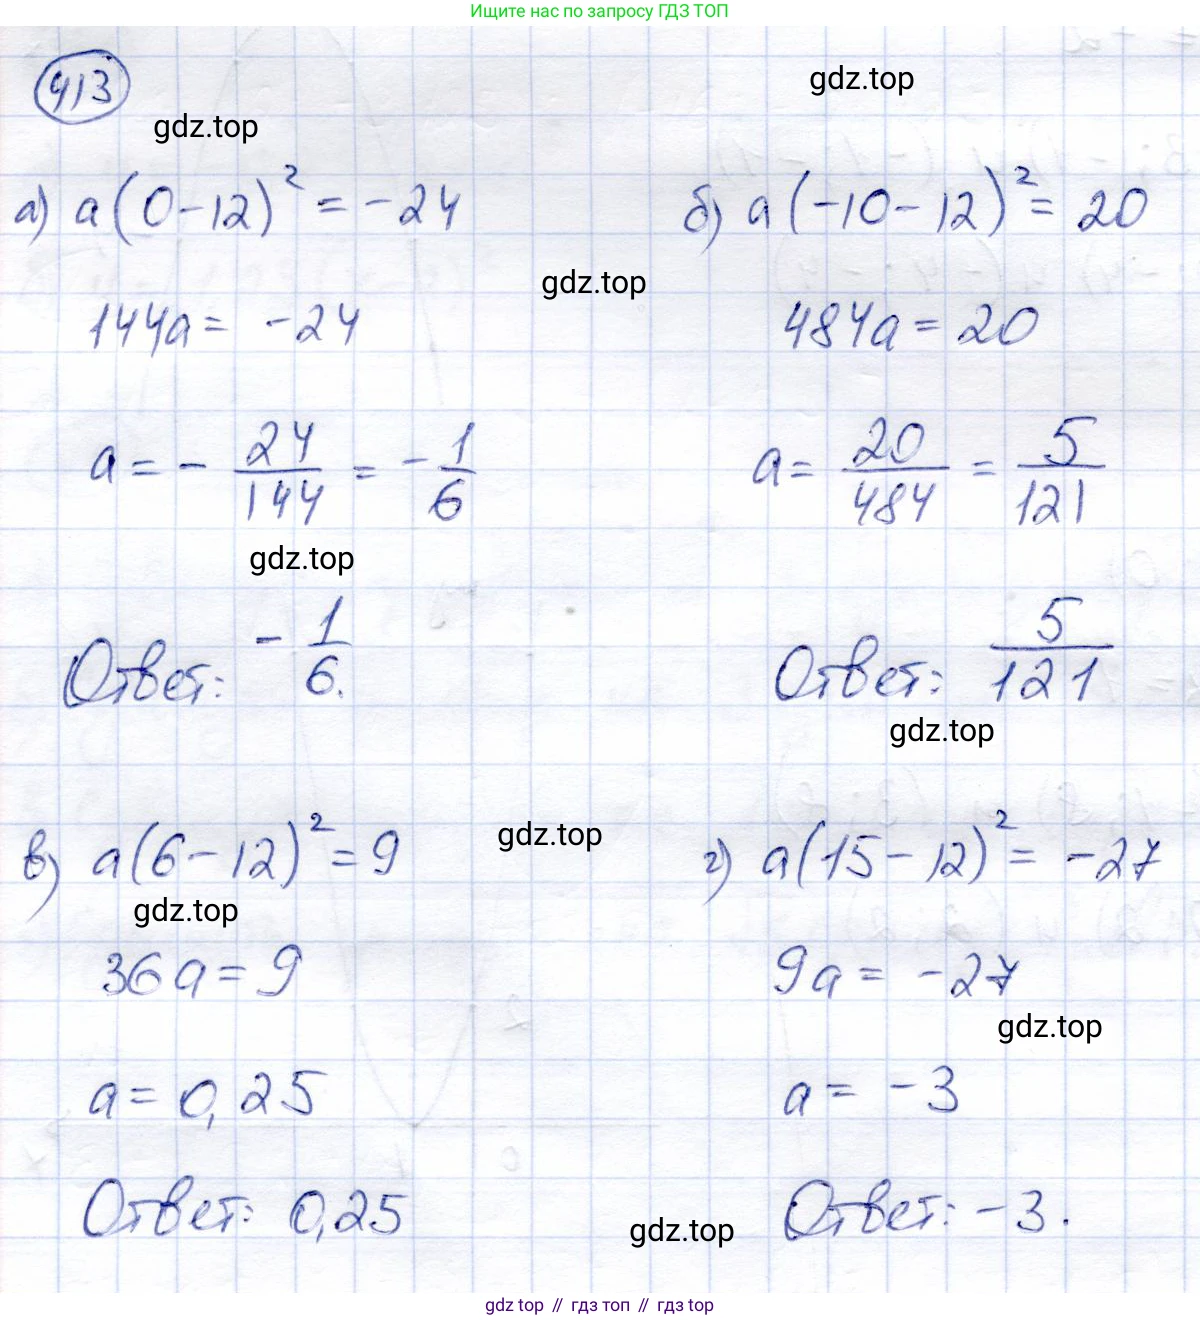 Ищите нас по запросу ГДЗ ТОП
413
gdz.top
gdz.top
а) a(0-12)² = -24
144a = -24
a = - 24/144 = - 1/6
gdz.top
Ответ: - 1/6.
gdz.top
б) a(-10-12)² = 20
484a = 20
a = 20/484 = 5/121
Ответ: 5/121
gdz.top
в) a(6-12)² = 9
gdz.top
gdz.top
36a = 9
a = 0,25
Ответ: 0,25
г) a(15-12)² = -27
9a = -27
gdz.top
a = -3
Ответ: -3.
gdz.top
gdz top // гдз топ // gdz top